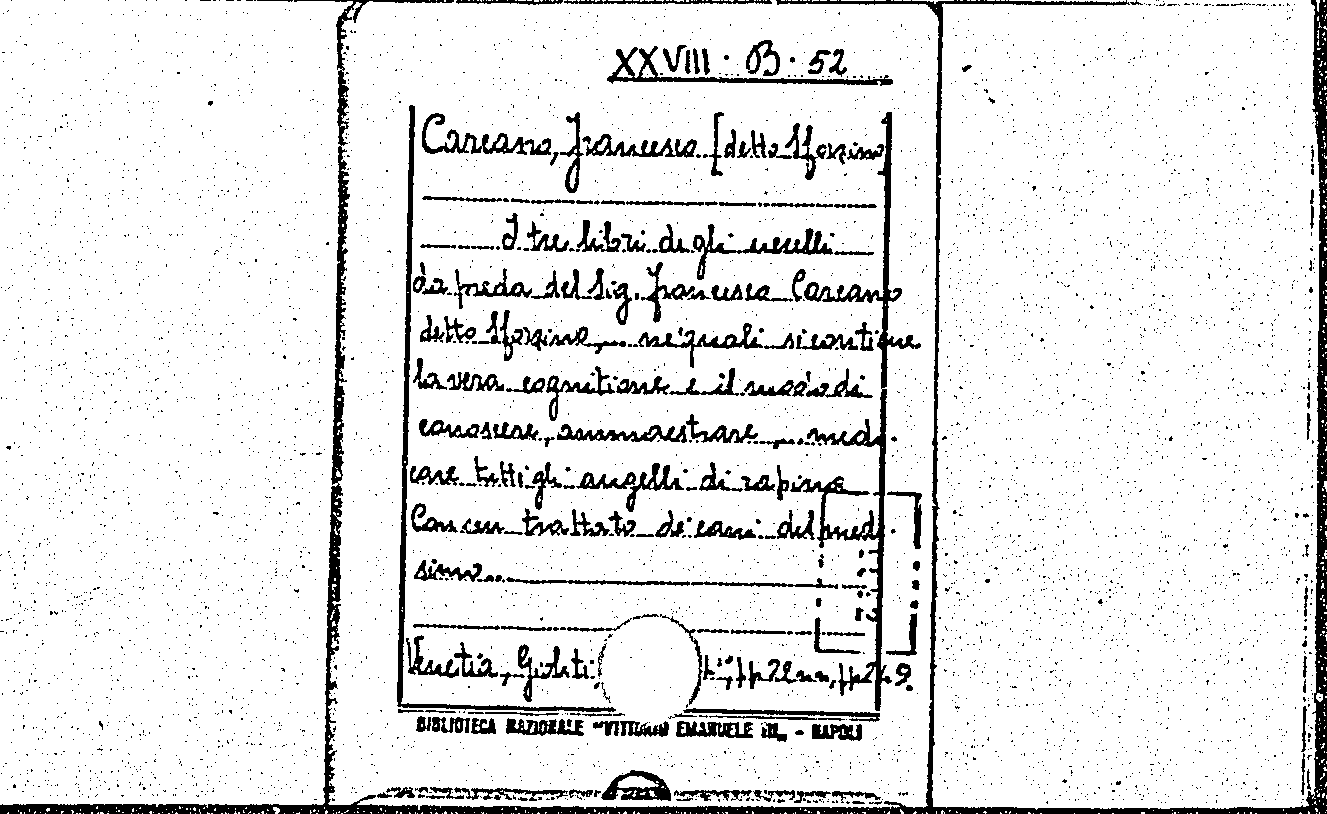 XXVIII · B · 52
Carcano, Francesco [detto Sforzino]
I tre libri de gli uccelli
da preda del Sig. Francesco Carcano
detto Sforzino, ... ne' quali si contiene
la vera cognitione e il modo di
conoscere, ammaestrare, ... medi-
care tutti gli augelli di rapina
Con un trattato de' cani del med-
simo...
Venetia, Gioliti, pp 249.
BIBLIOTECA NAZIONALE "VITTORIO EMANUELE III„ - NAPOLI